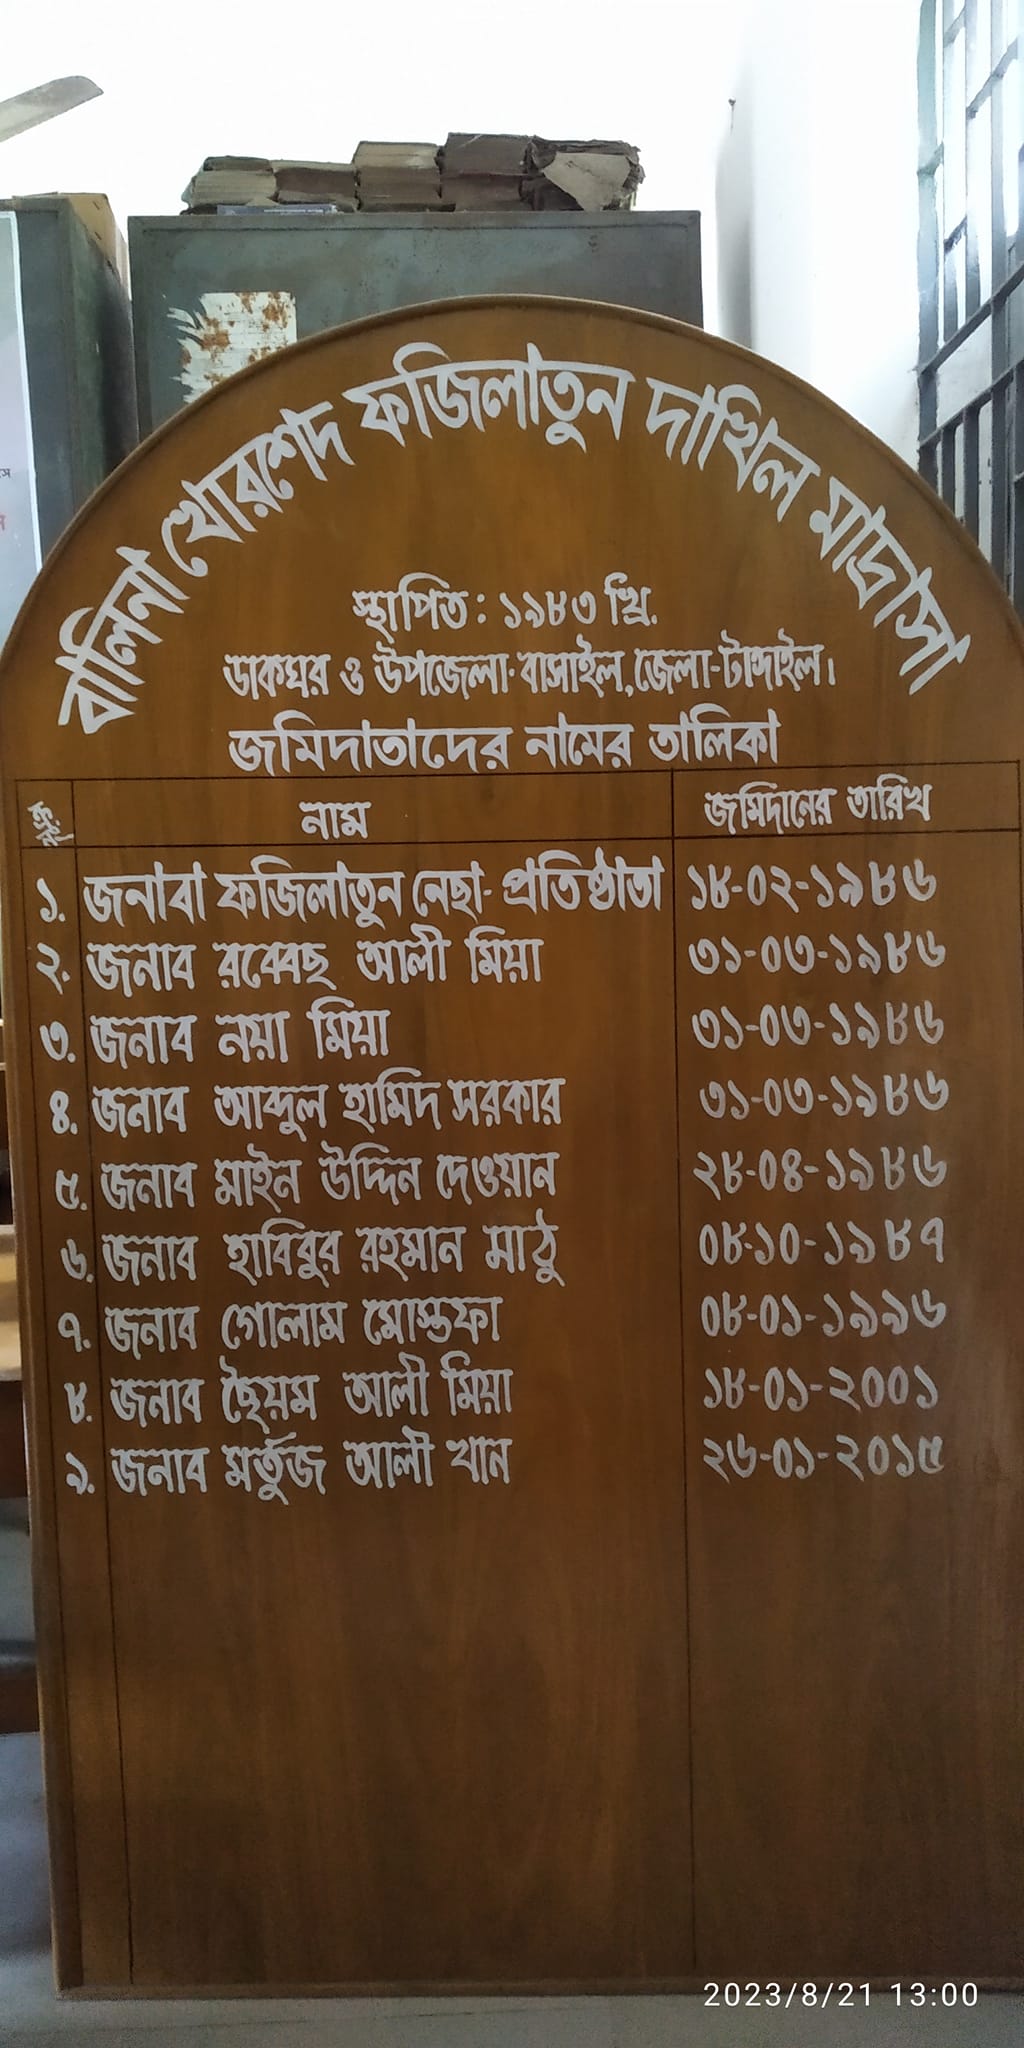 বালিনা খোরশেদ ফজিলাতুন দাখিল মাদ্রাসা
স্থাপিত : ১৯৮৩ খ্রি.
ডাকঘর ও উপজেলা-বাসাইল, জেলা-টাঙ্গাইল।
জমিদাতাদের নামের তালিকা
নাম জমিদানের তারিখ
১. জনাবা ফজিলাতুন নেছা- প্রতিষ্ঠাতা ১৮-০২-১৯৮৬
২. জনাব রব্বেছ আলী মিয়া ৩১-০৩-১৯৮৬
৩. জনাব নয়া মিয়া ৩১-০৩-১৯৮৬
৪. জনাব আব্দুল হামিদ সরকার ৩১-০৩-১৯৮৬
৫. জনাব মাইন উদ্দিন দেওয়ান ২৮-০৪-১৯৮৬
৬. জনাব হাবিবুর রহমান মাঠু ০৮-১০-১৯৮৭
৭. জনাব গোলাম মোস্তফা ০৮-০১-১৯৯৬
৮. জনাব ছৈয়ম আলী মিয়া ১৮-০১-২০০১
৯. জনাব মর্তুজ আলী খান ২৬-০১-২০১৫
2023/8/21 13:00